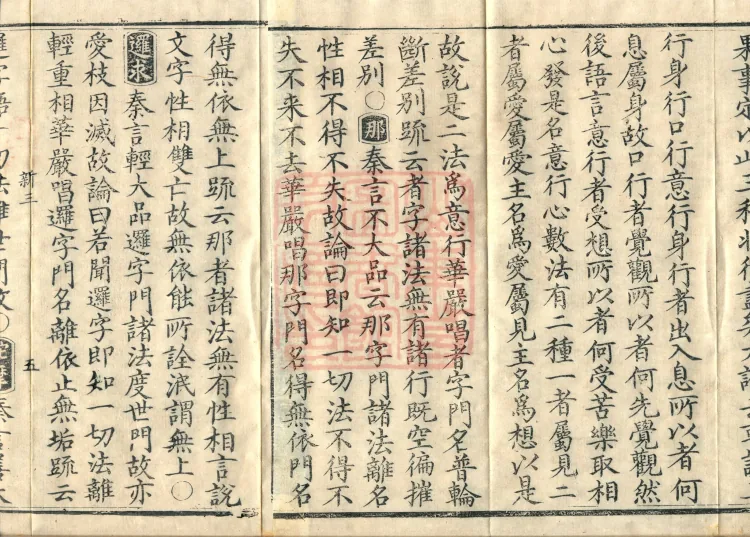 行身行口行意行身行者出入息所以者何
息屬身故口行者覺觀所以者何先覺觀然
後語言意行者受想所以者何受苦樂取相
心發是名意行心數法有二種一者屬見二
者屬愛屬愛主名為愛屬見主名為想以是
故說是二法為意行華嚴唱者字門名普輪
斷差別䟽云者字諸法無有諸行既空徧摧
差別〇那秦言不大品云那字門諸法離名
性相不得不失故論曰即知一切法不得不
失不来不去華嚴唱那字門名得無依門名
得無依無上䟽云那者諸法無有性相言說
文字性相雙亡故無依能所詮泯謂無上〇
邏求秦言輕大品邏字門諸法度世門故亦
愛枝因滅故論曰若聞邏字即知一切法離
輕重相華嚴唱邏字門名離依止無垢䟽云
新三
五